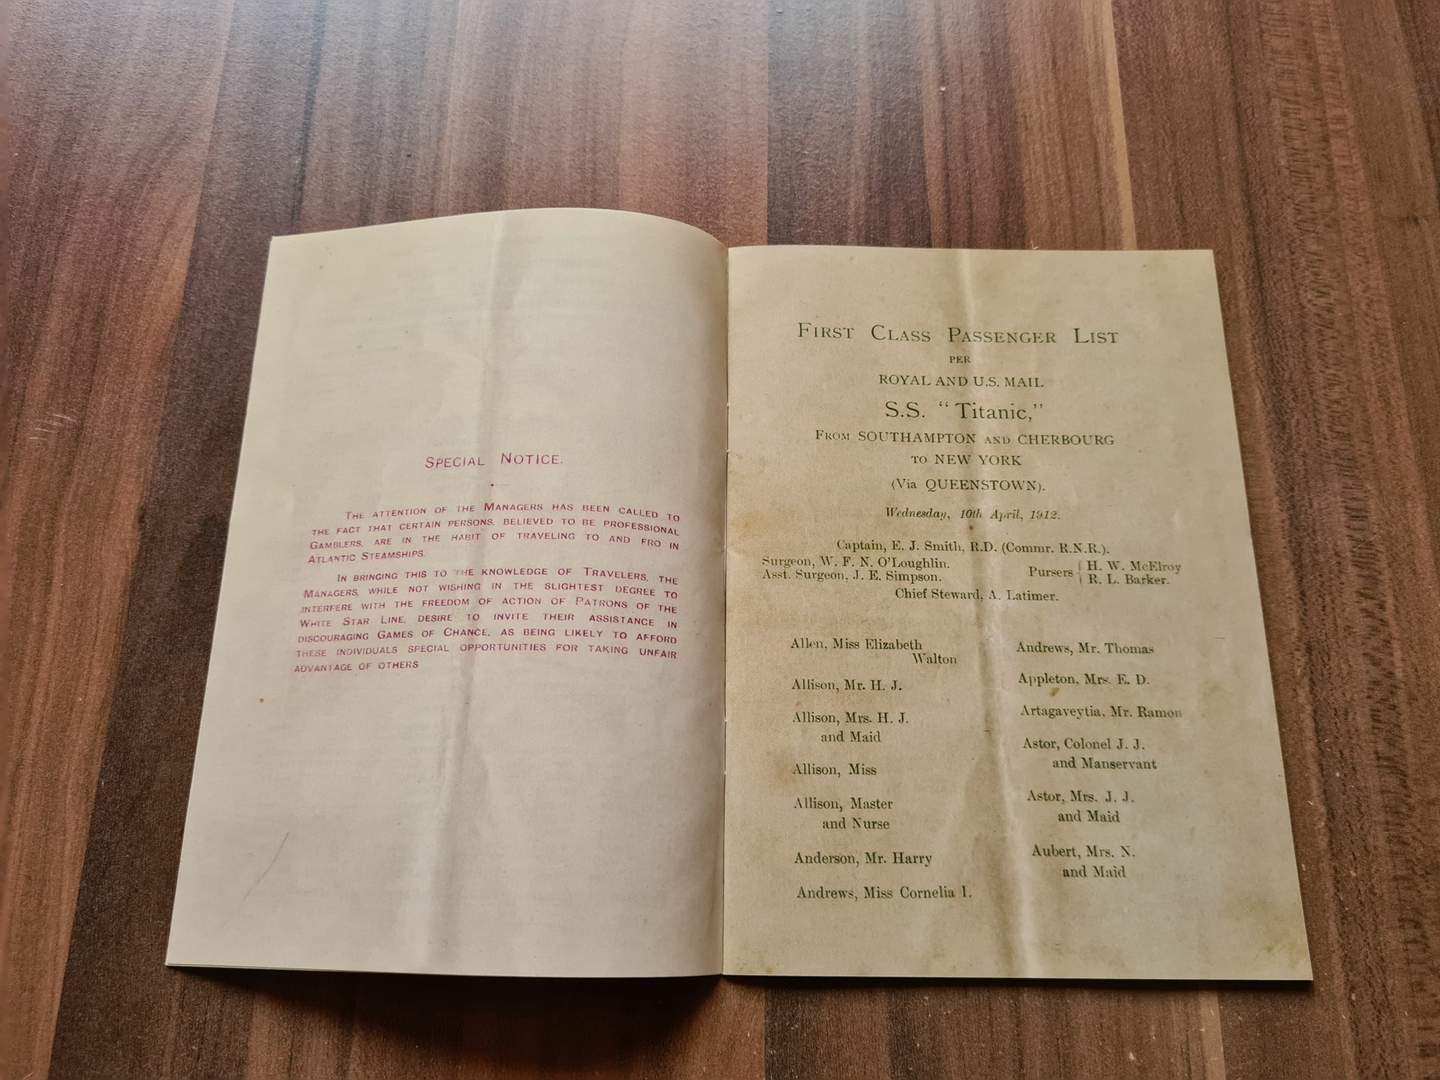 SPECIAL NOTICE.
THE ATTENTION OF THE MANAGERS HAS BEEN CALLED TO
THE FACT THAT CERTAIN PERSONS, BELIEVED TO BE PROFESSIONAL
GAMBLERS, ARE IN THE HABIT OF TRAVELING TO AND FRO IN
ATLANTIC STEAMSHIPS.
IN BRINGING THIS TO THE KNOWLEDGE OF TRAVELERS, THE
MANAGERS, WHILE NOT WISHING IN THE SLIGHTEST DEGREE TO
INTERFERE WITH THE FREEDOM OF ACTION OF PATRONS OF THE
WHITE STAR LINE, DESIRE TO INVITE THEIR ASSISTANCE IN
DISCOURAGING GAMES OF CHANCE, AS BEING LIKELY TO AFFORD
THESE INDIVIDUALS SPECIAL OPPORTUNITIES FOR TAKING UNFAIR
ADVANTAGE OF OTHERS
FIRST CLASS PASSENGER LIST
PER
ROYAL AND U.S. MAIL
S.S. "Titanic,"
FROM SOUTHAMPTON AND CHERBOURG
TO NEW YORK
(Via QUEENSTOWN).
Wednesday, 10th April, 1912.
Captain, E. J. Smith, R.D. (Commr. R.N.R.).
Surgeon, W. F. N. O'Loughlin.
Asst. Surgeon, J. E. Simpson.
Pursers { H. W. McElroy
R. L. Barker.
Chief Steward, A. Latimer.
Allen, Miss Elizabeth
Walton
Allison, Mr. H. J.
Allison, Mrs. H. J.
and Maid
Allison, Miss
Allison, Master
and Nurse
Anderson, Mr. Harry
Andrews, Miss Cornelia I.
Andrews, Mr. Thomas
Appleton, Mrs. E. D.
Artagaveytia, Mr. Ramon
Astor, Colonel J. J.
and Manservant
Astor, Mrs. J. J.
and Maid
Aubert, Mrs. N.
and Maid